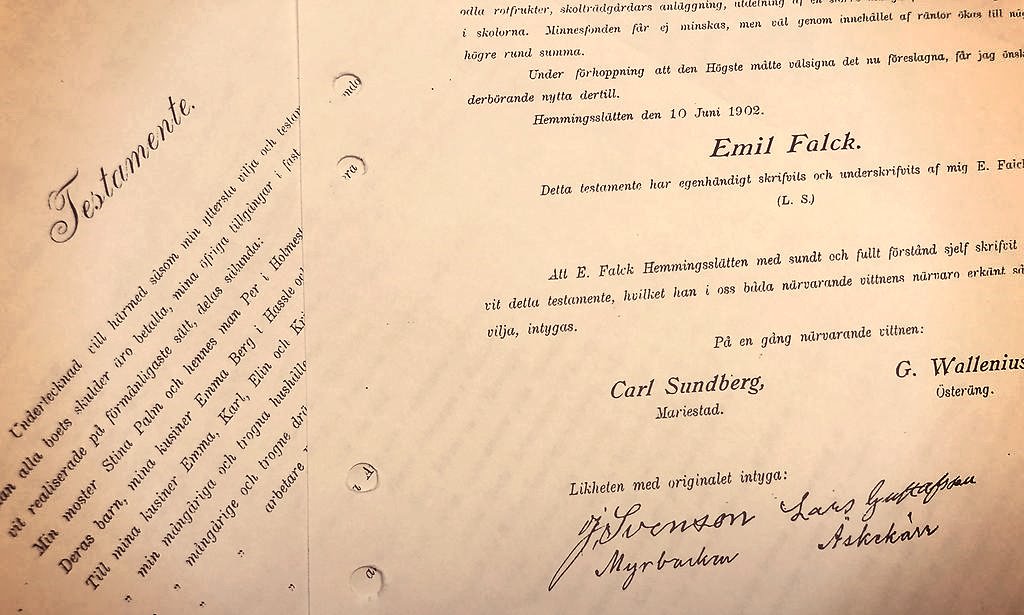 Testamente.
Undertecknad vill härmed såsom min yttersta vilja och
alla boets skulder äro betalta, mina öfriga tillgångar i fast
vit realiserade på förmånligaste sätt, delas sålunda:
Min moster Stina Palm och hennes man Per i
Deras barn, mina kusiner Emma Berg i Hassle
Till mina kusiner Emma, Karl, Elin och
" min mångåriga och trogna
" mångårige och trogne
" arbetare
"
odla rotfrukter, skolträdgårdars anläggning, utdelning af en
i skolorna. Minnesfonden får ej minskas, men väl genom innehållet af räntor ökas till
högre rund summa.
Under förhoppning att den Högste måtte välsigna det nu föreslagna, får jag
derbörande nytta dertill.
Hemmingsslätten den 10 Juni 1902.
Emil Falck.
Detta testamente har egenhändigt skrifvits och underskrifvits af mig E.
(L. S.)
Att E. Falck Hemmingsslätten med sundt och fullt förstånd sjelf skrifvit
vit detta testamente, hvilket han i oss båda närvarande vittnens närvaro erkänt
vilja, intygas.
På en gång närvarande vittnen:
Carl Sundberg,
Mariestad.
G. Wallenius
Österäng.
Likheten med originalet intyga:
J. Svenson
Myrbacken
Lars Gustafsson
Äskekärr